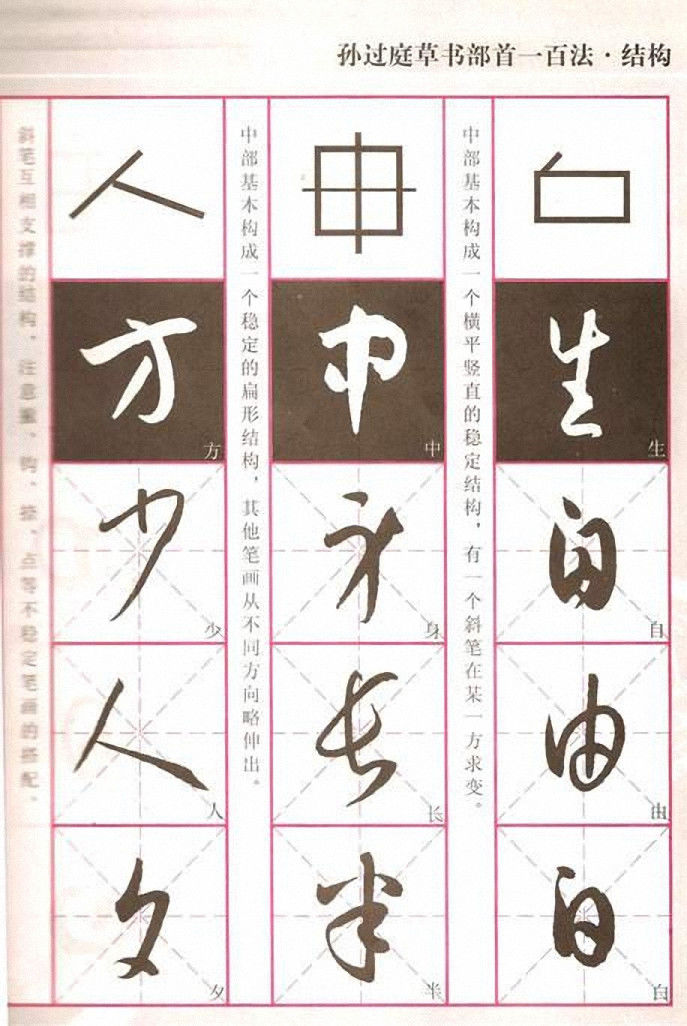 孙过庭草书部首一百法·结构
生
生
自
自
由
由
白
白
中部基本构成一个横平竖直的稳定结构，有一个斜笔在某一方求变。
中
中
身
身
长
长
半
半
中部基本构成一个稳定的扁形结构，其他笔画从不同方向略伸出。
方
方
少
少
人
人
夕
夕
斜笔互相支撑的结构，注意、钩、、点等不稳定笔画的搭配。